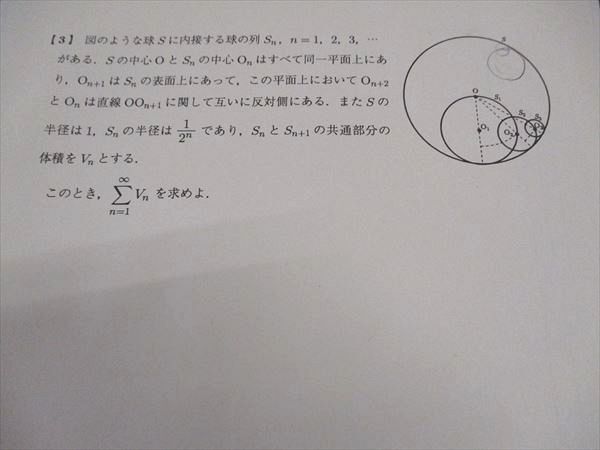 【3】 図のような球 S に内接する球の列 Sₙ, n = 1, 2, 3, …
がある. S の中心 O と Sₙ の中心 Oₙ はすべて同一平面上にあ
り, Oₙ₊₁ は Sₙ の表面上にあって, この平面上において Oₙ₊₂
と Oₙ は直線 OOₙ₊₁ に関して互いに反対側にある. また S の
半径は 1, Sₙ の半径は 1/2ⁿ であり, Sₙ と Sₙ₊₁ の共通部分の
体積を Vₙ とする.
このとき, ∑_{n=1}^{∞} Vₙ を求めよ.
S
O
S₁
S₂
S₃
O₁
O₂